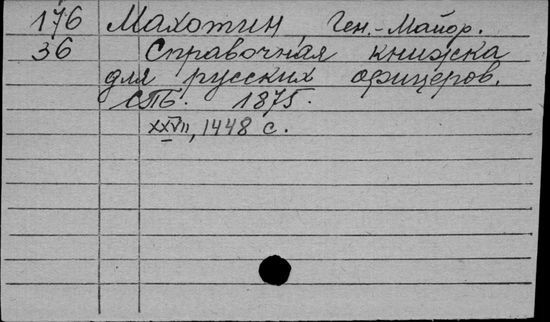 176 Махотин, Ген.-Майор.
36 Справочная книжка
для русских офицеров.
СПБ. 1875.
XXVII, 1448 с.